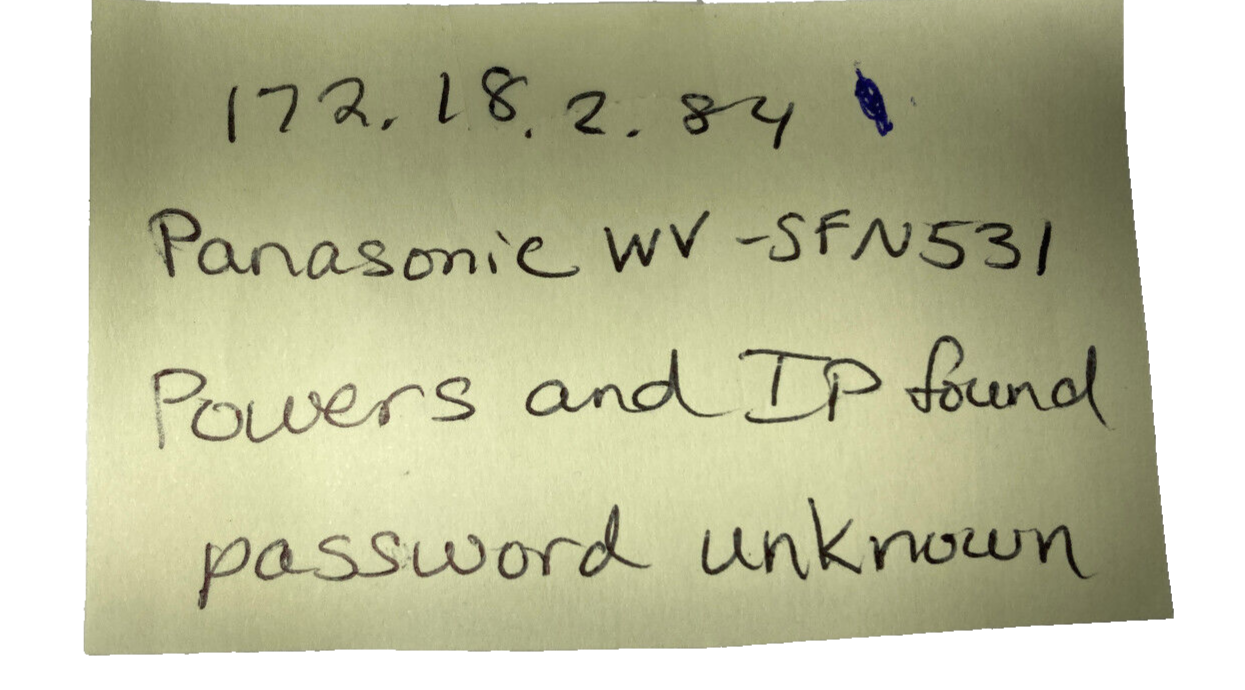 172.18.2.84
Panasonic WV-SFN531
Powers and IP found
password unknown